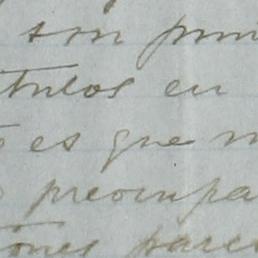 son pun
tulos en
es que n
preocupa
ones parec